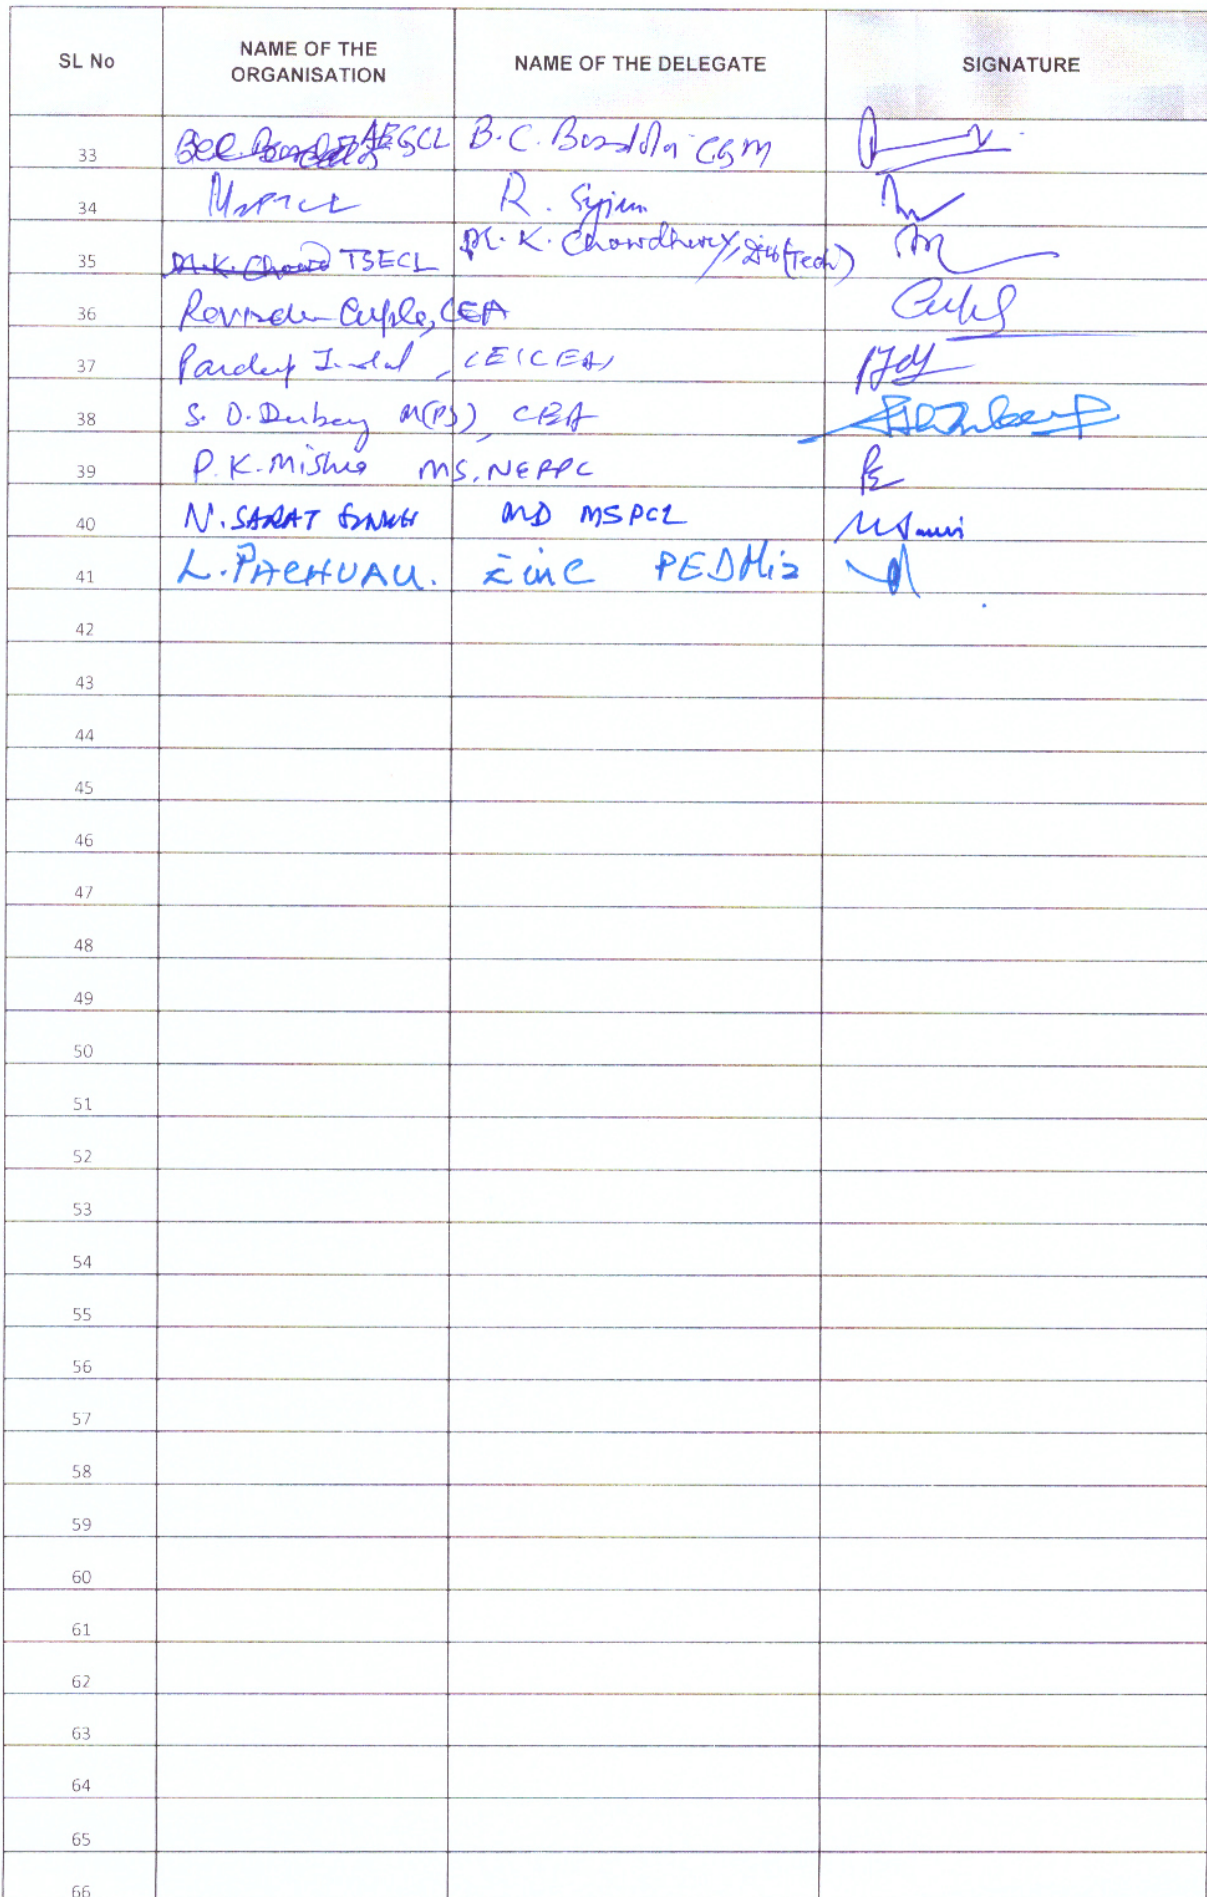 SL No NAME OF THE ORGANISATION NAME OF THE DELEGATE SIGNATURE
33 AEGCL B.C. CGM
34 R.
35 M.K. Chowd TSECL M.K. Chowdhury, Dir(Tech)
36 CEA
37 Pardeep Jindal, CE(CEA)
38 S. D. Dubey M(PS), CEA
39 P.K. Mishra MS, NERPC
40 N. SARAT SINGH MD MSPCL
41 L. PACHUAU. EinC PEDMiz
42
43
44
45
46
47
48
49
50
51
52
53
54
55
56
57
58
59
60
61
62
63
64
65
66